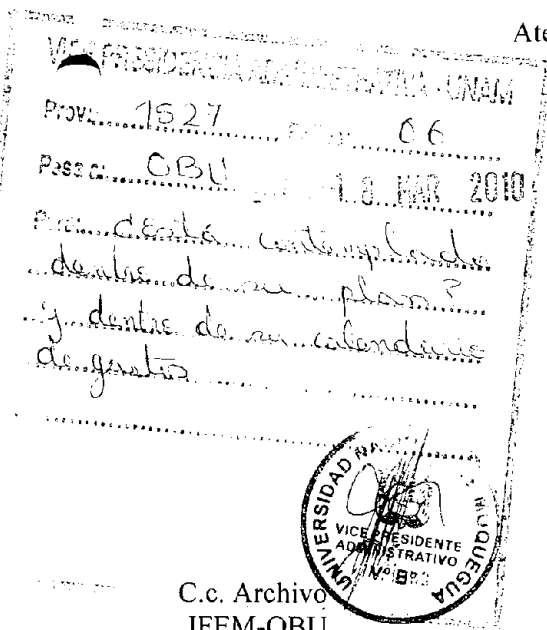 Ate
VICE PRESIDENCIA ADMINISTRATIVA - UNAM
Prov. 1527 06
Pase a: OBU 18 MAR 2010
Para: ¿Está contemplado
dentro de su plan?
y dentro de su calendario
de gastos
UNIVERSIDAD NA MOQUEGUA
VICE PRESIDENTE
ADMINISTRATIVO
Vº Bº
C.c. Archivo
IFEM-OBU